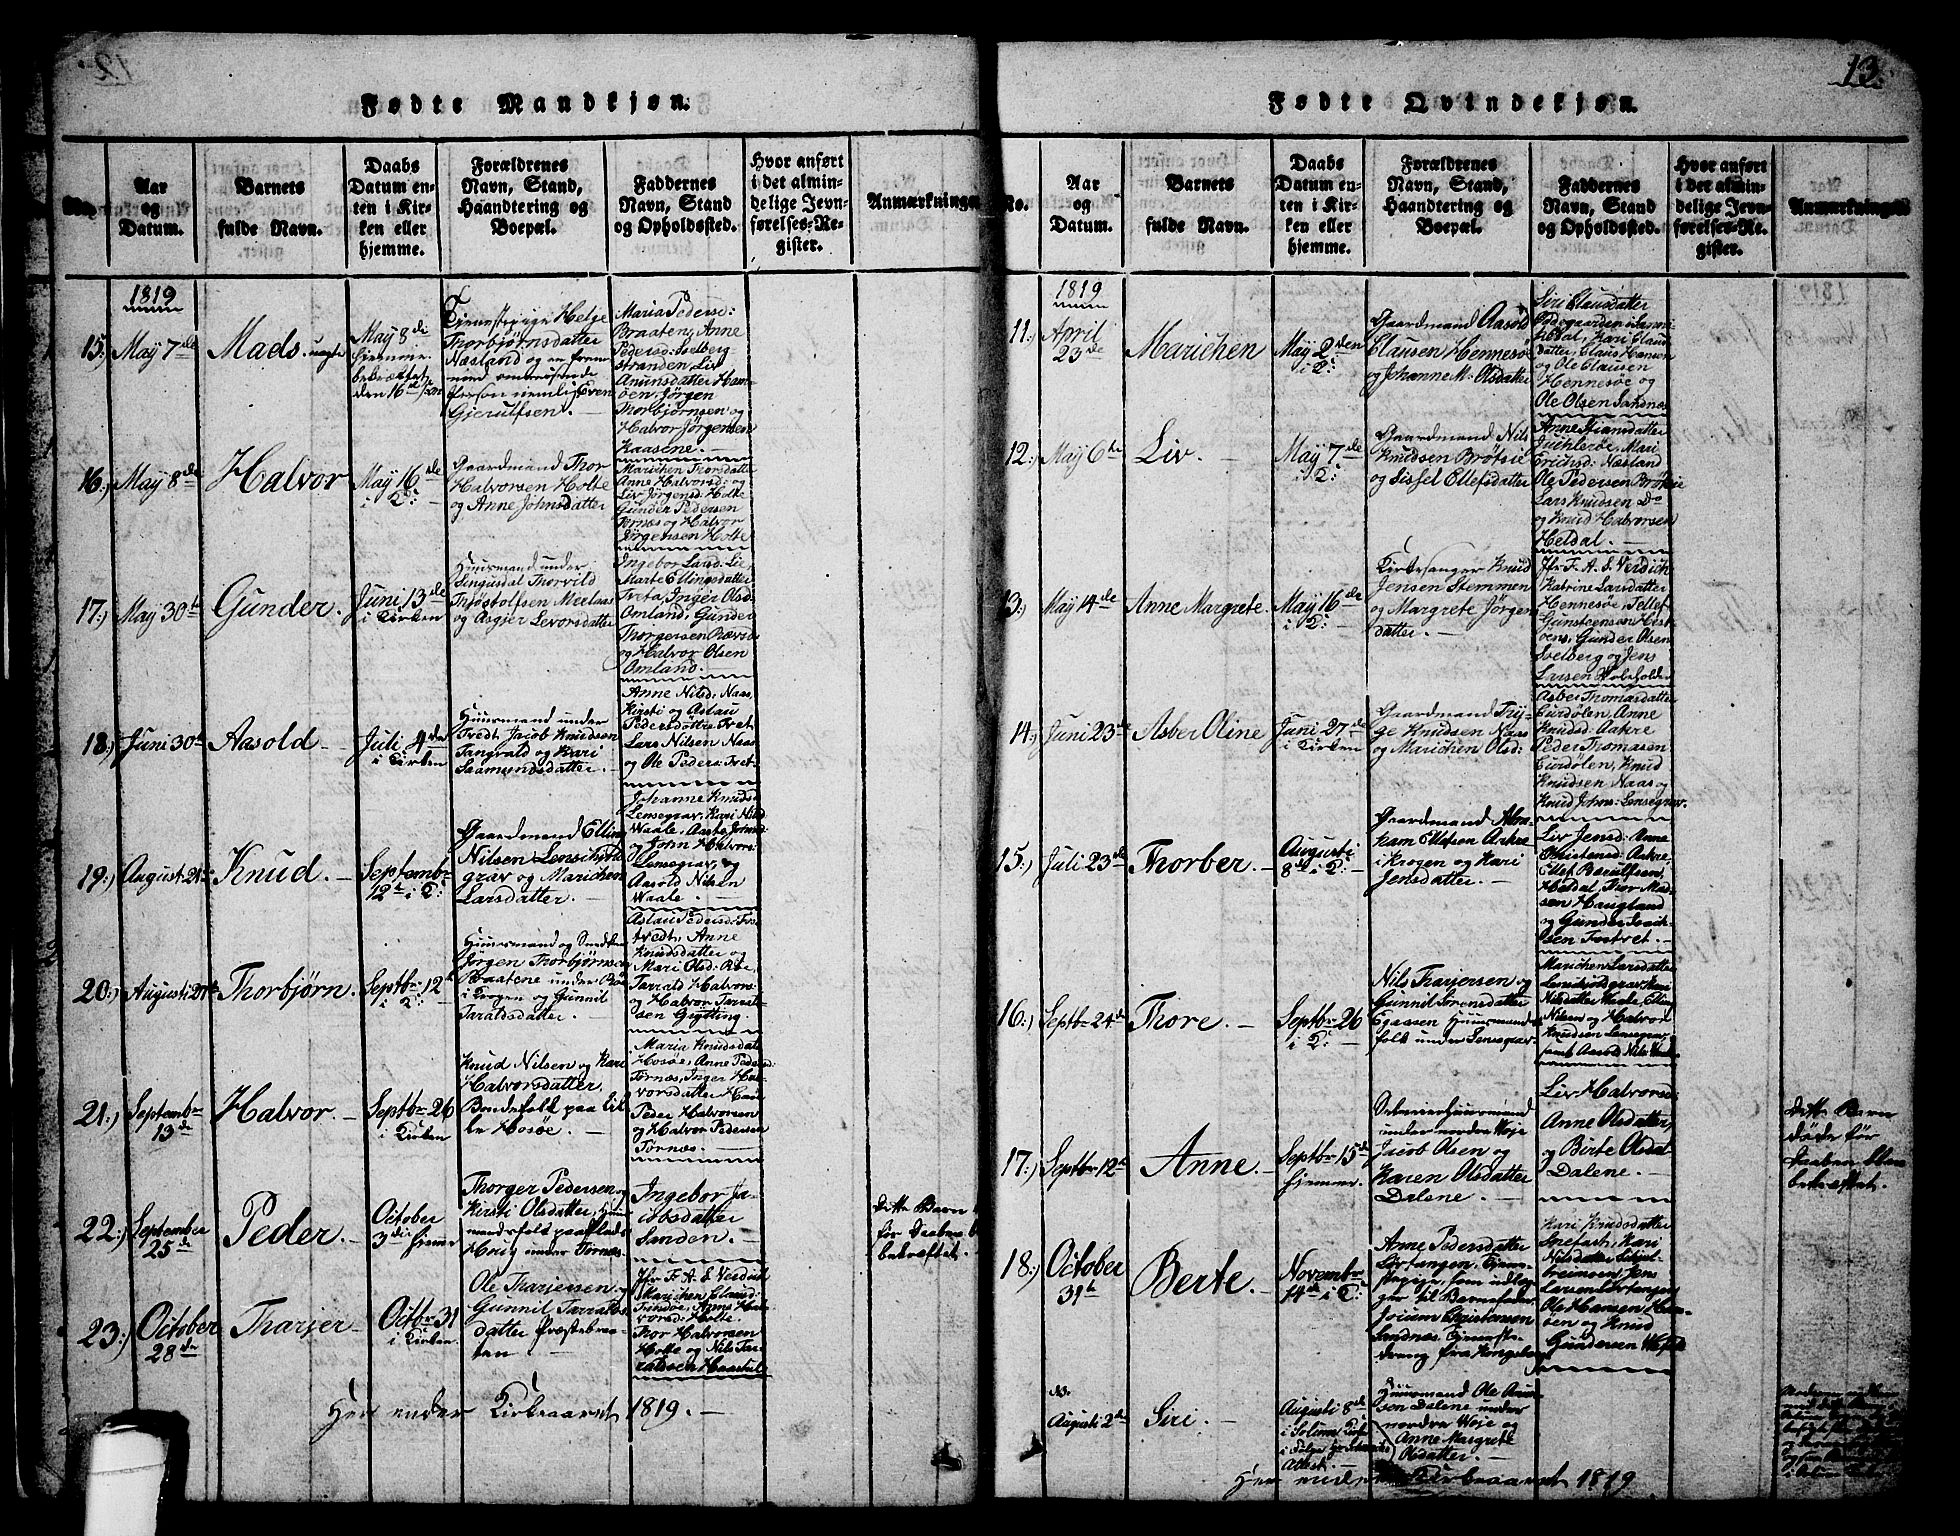 12
Fødte Mandkjøn.
No.
Aar
og
Datum.
Barnets
fulde Navn.
Daabs
Datum en-
ten i Kir-
ken eller
hjemme.
Forældrenes
Navn, Stand,
Haandtering og
Boepæl.
Faddernes
Navn, Stand
og Opholdsted.
Hvor anført
i det almin-
delige Jevn-
førelses-Re-
gister.
Anmærkninger
1819
15.) May 7de
Mads uægte
May 8de
hjemme
bekræftet
den 16de
Tjenestepige Helge
Thorbjørnsdatter
Næsland og en
Person nemlig Even
Gjerulfsen. —
Maria Pedersd:
Braaten, Anne
Pedersd: Svelberg
stranden, Liv
Anunsdatter
Jørgen
Thorbjørnsen og
Halvor Jørgensen
Kaasene.
16.) May 8de
Halvor
May 16de
i K:
Gaardmand Thor
Halvorsen Holte
og Anne Johnsdatter
Marichen Thorsdatter
Anne Halvorsd: og
Liv Jørgensd: Holte
Gunder Pedersen
Tornæs og Halvor
Jørgensen Holte
17.) May 30te
Gunder.
Juni 13de
i Kirken
Huusmand under
Lengusdal Thorvild
Thjøstolfsen Meelaas
og Asgjer Levorsdatter
Ingebor Larsd: Lie,
Marte Ellingsdatter
Treta, Inger Olsd:
Omland, Gunder
Thorgersen
og Halvor Olsen
Omland.
18.) Juni 30te
Aasold —
Juli 4de
i Kirken
Huusmand under
Tvedt Jacob Knudsen
Tangvald og Kari
Saamundsdatter. —
Anne Nilsd: Naas,
Kirsti og Aslau
Pedersdøttre Tvet
Lars Nilsen Naas
og Ole Peders: Tvet
19.) August 21de
Knud. —
Septembr
12te i K:
Gaardmand Elling
Nilsen Lensegrav
grav og Marichen
Larsdatter. —
Johanne Knudsd:
Lensegrav, Kari Nilsd:
Waale, Aaste Johnsd:
og John Halvors:
Lensegrav, og
Aasold Nilsen
Waale. —
20.) Augusti 27de
Thorbjørn.
Septbr 12te
i K:
Huusmand og Smed
Jørgen Thorbjørnsen
Braatene under
i Krogen og Gunnil
Taraldsdatter. —
Aslau Pedersd:
tvedt, Anne
Knudsdatter og
Mari Olsd: Bøe,
Tarald Halvors:
og Halvor Tarald-
sen Grytting.
21.) Septembr
13de
Halvor. —
Septbr 26
i Kirken
Knud Nilsen og Kari
Halvorsdatter,
Bondefolk paa Lil-
le Hosøe. —
Maria Knudsdatter
Hosøe, Anne Pedersd:
Tornæs, Inger Hal-
vorsdatter
Peder Halvorsen
og Halvor Pedersen
Tornæs. —
22.) September
25de
Peder. —
October
3de hjemme
Thorger Pedersen og
Kirsti Olsdatter, Huus
mandsfolk paa Plads
Houg under Tornæs.
Ingebor Ja-
cobsdatter
Sanden.
Dette Barn
før Daaben
bekræftet.
23.) October
28de
Tharjer —
Octbr 31
i Kirken
Ole Tharjersen og
Gunnil Taralds-
datter Præstebraa-
ten. —
Jfr F. A. S. Verdich
Marichen Clausd:
Frisøe, Anne Hal-
vorsd: Holte
Thor Halvorsen
Holte og Nils Ta-
raldsen Haastul
Her ender Kirkeaaret 1819. —
13.
Fødte Qvindekjøn.
No.
Aar
og
Datum.
Barnets
fulde Navn.
Daabs
Datum en-
ten i Kir-
ken eller
hjemme.
Forældrenes
Navn, Stand,
Haandtering og
Boepæl.
Faddernes
Navn, Stand
og Opholdsted.
Hvor anført
i det almin-
delige Jevn-
førelses-Re-
gister.
Anmærkninger
1819
11.) April
23de
Marichen
May 2den
i K:
Gaardmand Aasold
Clausen Hennesøe
og Johanne M: Olsdatter
Siri Clausdatter
Heldal, Kari Claus
datter, Claus Hansen
og Ole Clausen
Hennesøe og
Ole Olsen Sandnæs
12.) May 6te
Liv. —
May 7de
i K:
Gaardmand Nils
Knudsen Brøtsie
og Sissel Ellefsdatter
Anne
Mari
Ericsd: Næsland
Ole Pedersen Brøtsie
Lars Knudsen Do
og Knud Halvorsen
Heldal. —
13.) May 14de
Anne Margrete.
May 16de
i K:
Kirkesanger Knud
Jensen Stemmen
og Margrete Jørgens
datter. —
Jfr F. A. S. Verdich
Katrine Larsdatter
Hennesøe, Tellef
Gunsteensen Hest-
øens, Gunder Olsen
Svelberg og Jens
Larsen
14.) Juni 23de
Asber Oline
Juni 27de
i Kirken
Gaardmand Try-
ge Knudsen Naas
og Marichen Olsd:
Asber Thomasdatter
Eurdølen, Anne
Knudsd: Aakere
Peder Thomassen
Eurdølen, Knud
Knudsen Naas og
Knud Johns: Lensegrav.
15.) Juli 23de
Thorber. —
Augusti
8de i K: —
Gaardmand Abra-
ham Ellefsen Aakre
i Krogen og Kari
Jensdatter. —
Liv Jensd: Anne
Christensd: Aakre,
Ellef Berulfsen
Heldal, Thor Mad-
sen Haugland
og Gunder
sen Tvetret. —
16.) Septbr 24de
Thore. —
Septbr 26
i K: —
Nils Tharjersen og
Gunnil Sørensdatter
Egaasen Huusmands
folk under Lensegrav.
Marichen Larsdatter
Lensegrav, Kari
Nilsdatter Waale, Elling
Nilsen og Halvor
Knudsen Lensegrav,
samt Aasold Nils: Waale
17.) Septbr 12te
Anne. —
Septbr 15de
hjemme. —
Huusmand
under nordre Woje
Jacob Olsen og
Karen Olsdatter
Dalene. —
Liv Halvorsd:
Anne Olsdatter,
og Birte Olsdat
Dalene. —
Dette Barn
døde før
Daaben blev
bekræftet.
18.) October
31te
Berte. —
Novembr
14de i K:
Anne Pedersdatter
Lövtangen, Tjenes-
tepige, som udlæg-
ger til Barnefader
Jocum Christensen
Sandnæs Tjeneste
dreng fra Kongsberg
Kari Knudsdatter
Snefast, Kari
Nilsdatter
Jens
Larsen Lövtangen
Ole Hansen
en og Knud
Gundersen
Augusti 2de
Siri. —
Augusti 8de
i Solum Kirke
i Følge
Attest. —
Huusmand Ole Anun-
sen Dalene under
nordre Woje og
Anne Margrete
Olsdatter. —
Her ender Kirkeaaret 1819